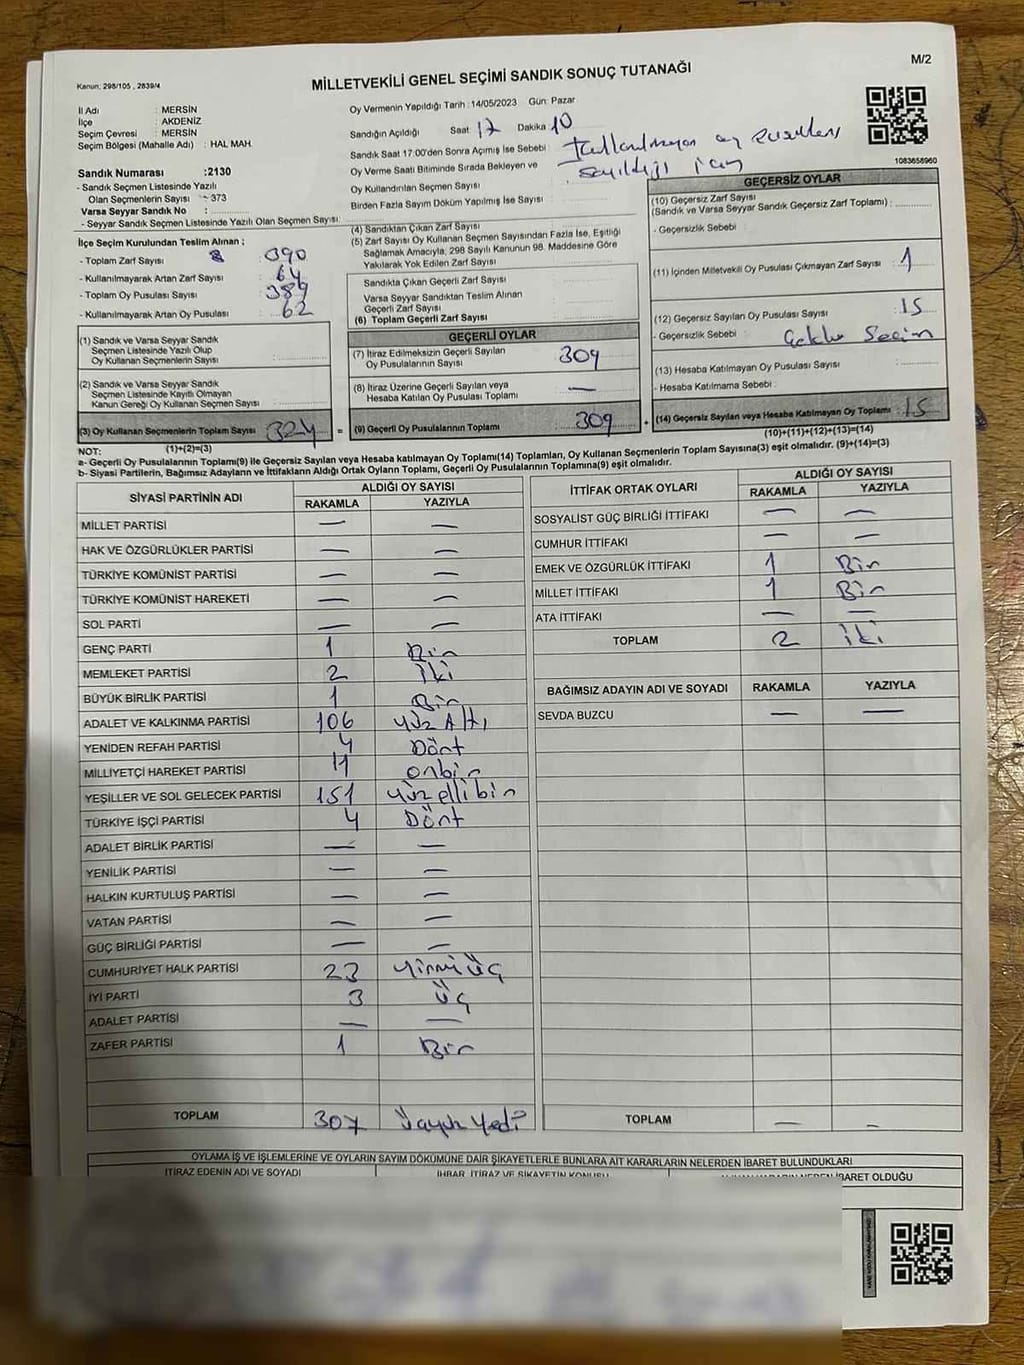 M/2
Kanun: 298/105 , 2839/4
MİLLETVEKİLİ GENEL SEÇİMİ SANDIK SONUÇ TUTANAĞI
İl Adı : MERSİN
İlçe : AKDENİZ
Seçim Çevresi : MERSİN
Seçim Bölgesi (Mahalle Adı) : HAL MAH.
Oy Vermenin Yapıldığı Tarih :14/05/2023 Gün: Pazar
Sandığın Açıldığı Saat 17 Dakika 10
Sandık Saat 17:00'den Sonra Açımış İse Sebebi : Kullanılmayan oy pusulaları
sayıldığı için
Oy Verme Saati Bitiminde Sırada Bekleyen ve
Oy Kullandırılan Seçmen Sayısı :
Birden Fazla Sayım Döküm Yapılmış İse Sayısı :
1083658960
Sandık Numarası :2130
- Sandık Seçmen Listesinde Yazılı
Olan Seçmenlerin Sayısı : 373
Varsa Seyyar Sandık No :
- Seyyar Sandık Seçmen Listesinde Yazılı Olan Seçmen Sayısı:
İlçe Seçim Kurulundan Teslim Alınan ;
- Toplam Zarf Sayısı : 390
- Kullanılmayarak Artan Zarf Sayısı : 64
- Toplam Oy Pusulası Sayısı : 389
- Kullanılmayarak Artan Oy Pusulası : 62
(1) Sandık ve Varsa Seyyar Sandık
Seçmen Listesinde Yazılı Olup
Oy Kullanan Seçmenlerin Sayısı :
(2) Sandık ve Varsa Seyyar Sandık
Seçmen Listesinde Kayıtlı Olmayan
Kanun Gereği Oy Kullanan Seçmen Sayısı :
(3) Oy Kullanan Seçmenlerin Toplam Sayısı : 324
(1)+(2)=(3)
(4) Sandıktan Çıkan Zarf Sayısı :
(5) Zarf Sayısı Oy Kullanan Seçmen Sayısından Fazla İse, Eşitliği
Sağlamak Amacıyla, 298 Sayılı Kanunun 98. Maddesine Göre
Yakılarak Yok Edilen Zarf Sayısı :
Sandıkta Çıkan Geçerli Zarf Sayısı :
Varsa Seyyar Sandıktan Teslim Alınan
Geçerli Zarf Sayısı :
(6) Toplam Geçerli Zarf Sayısı :
GEÇERLİ OYLAR
(7) İtiraz Edilmeksizin Geçerli Sayılan
Oy Pusulalarının Sayısı : 309
(8) İtiraz Üzerine Geçerli Sayılan veya
Hesaba Katılan Oy Pusulası Toplamı : —
= (9) Geçerli Oy Pusulalarının Toplamı : 309 +
GEÇERSİZ OYLAR
(10) Geçersiz Zarf Sayısı
(Sandık ve Varsa Seyyar Sandık Geçersiz Zarf Toplamı) :
- Geçersizlik Sebebi :
(11) İçinden Milletvekili Oy Pusulası Çıkmayan Zarf Sayısı : 1
(12) Geçersiz Sayılan Oy Pusulası Sayısı : 15
- Geçersizlik Sebebi : Seçim
(13) Hesaba Katılmayan Oy Pusulası Sayısı :
- Hesaba Katılmama Sebebi :
(14) Geçersiz Sayılan veya Hesaba Katılmayan Oy Toplamı : 15
(10)+(11)+(12)+(13)=(14)
NOT:
a- Geçerli Oy Pusulalarının Toplamı(9) ile Geçersiz Sayılan veya Hesaba katılmayan Oy Toplamı(14) Toplamları, Oy Kullanan Seçmenlerin Toplam Sayısına(3) eşit olmalıdır. (9)+(14)=(3)
b- Siyasi Partilerin, Bağımsız Adayların ve İttifakların Aldığı Ortak Oyların Toplamı, Geçerli Oy Pusulalarının Toplamına(9) eşit olmalıdır.
SİYASİ PARTİNİN ADI ALDIĞI OY SAYISI
RAKAMLA YAZIYLA
MİLLET PARTİSİ — —
HAK VE ÖZGÜRLÜKLER PARTİSİ — —
TÜRKİYE KOMÜNİST PARTİSİ — —
TÜRKİYE KOMÜNİST HAREKETİ — —
SOL PARTİ — —
GENÇ PARTİ 1 Bir
MEMLEKET PARTİSİ 2 İki
BÜYÜK BİRLİK PARTİSİ 1 Bir
ADALET VE KALKINMA PARTİSİ 106 yüz Altı
YENİDEN REFAH PARTİSİ 4 Dört
MİLLİYETÇİ HAREKET PARTİSİ 11 onbir
YEŞİLLER VE SOL GELECEK PARTİSİ 151 yüzellibir
TÜRKİYE İŞÇİ PARTİSİ 4 Dört
ADALET BİRLİK PARTİSİ — —
YENİLİK PARTİSİ — —
HALKIN KURTULUŞ PARTİSİ — —
VATAN PARTİSİ — —
GÜÇ BİRLİĞİ PARTİSİ — —
CUMHURİYET HALK PARTİSİ 23 yirmi üç
İYİ PARTİ 3 üç
ADALET PARTİSİ — —
ZAFER PARTİSİ 1 Bir
TOPLAM 307 üçyüz yedi
İTTİFAK ORTAK OYLARI ALDIĞI OY SAYISI
RAKAMLA YAZIYLA
SOSYALİST GÜÇ BİRLİĞİ İTTİFAKI — —
CUMHUR İTTİFAKI — —
EMEK VE ÖZGÜRLÜK İTTİFAKI 1 Bir
MİLLET İTTİFAKI 1 Bir
ATA İTTİFAKI — —
TOPLAM 2 iki
BAĞIMSIZ ADAYIN ADI VE SOYADI RAKAMLA YAZIYLA
SEVDA BUZCU — —
TOPLAM — —
OYLAMA İŞ VE İŞLEMLERİNE VE OYLARIN SAYIM DÖKÜMÜNE DAİR ŞİKAYETLERLE BUNLARA AİT KARARLARIN NELERDEN İBARET BULUNDUKLARI
İTİRAZ EDENİN ADI VE SOYADI İHBAR, İTİRAZ VE ŞİKAYETİN KONUSU İBARET OLDUĞU